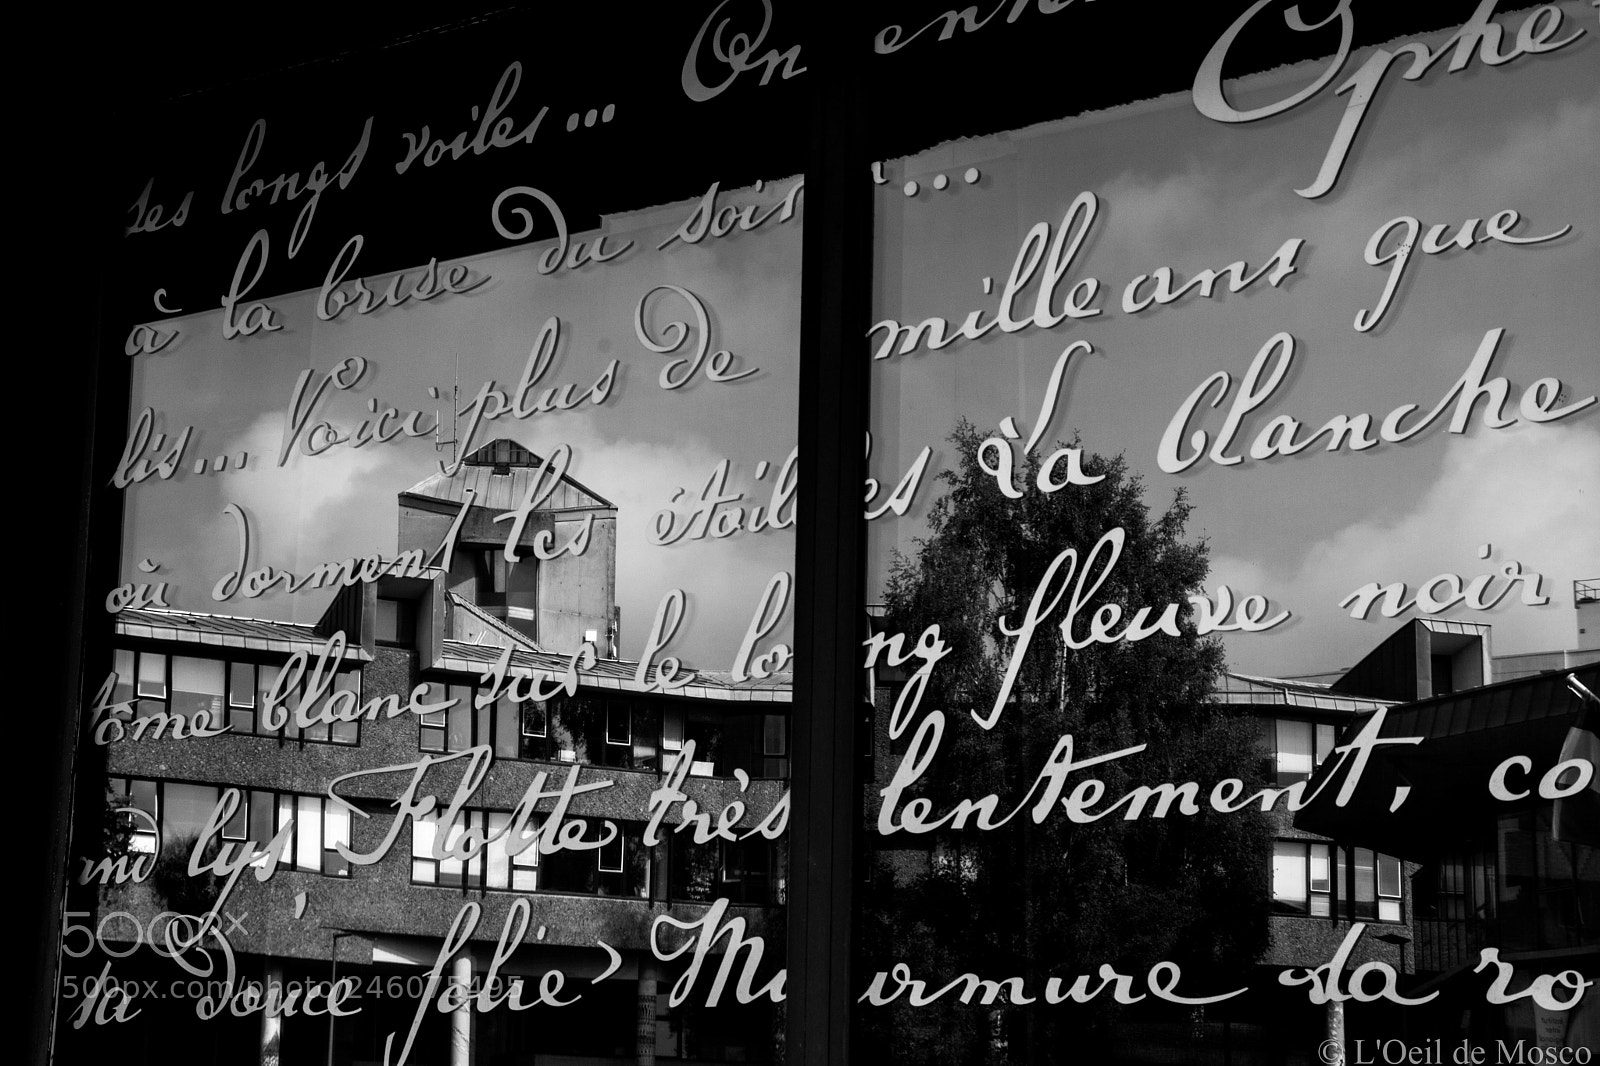 ses longs voiles... On ente
à la brise du soir... Ophé
lis... Voici plus de mille ans que
où dorment les étoiles La blanche
tôme blanc sur le long fleuve noir
and lys Flotte très lentement, co
sa douce folie Murmure sa ro
500px
500px.com/photo/246075495
© L'Oeil de Mosco